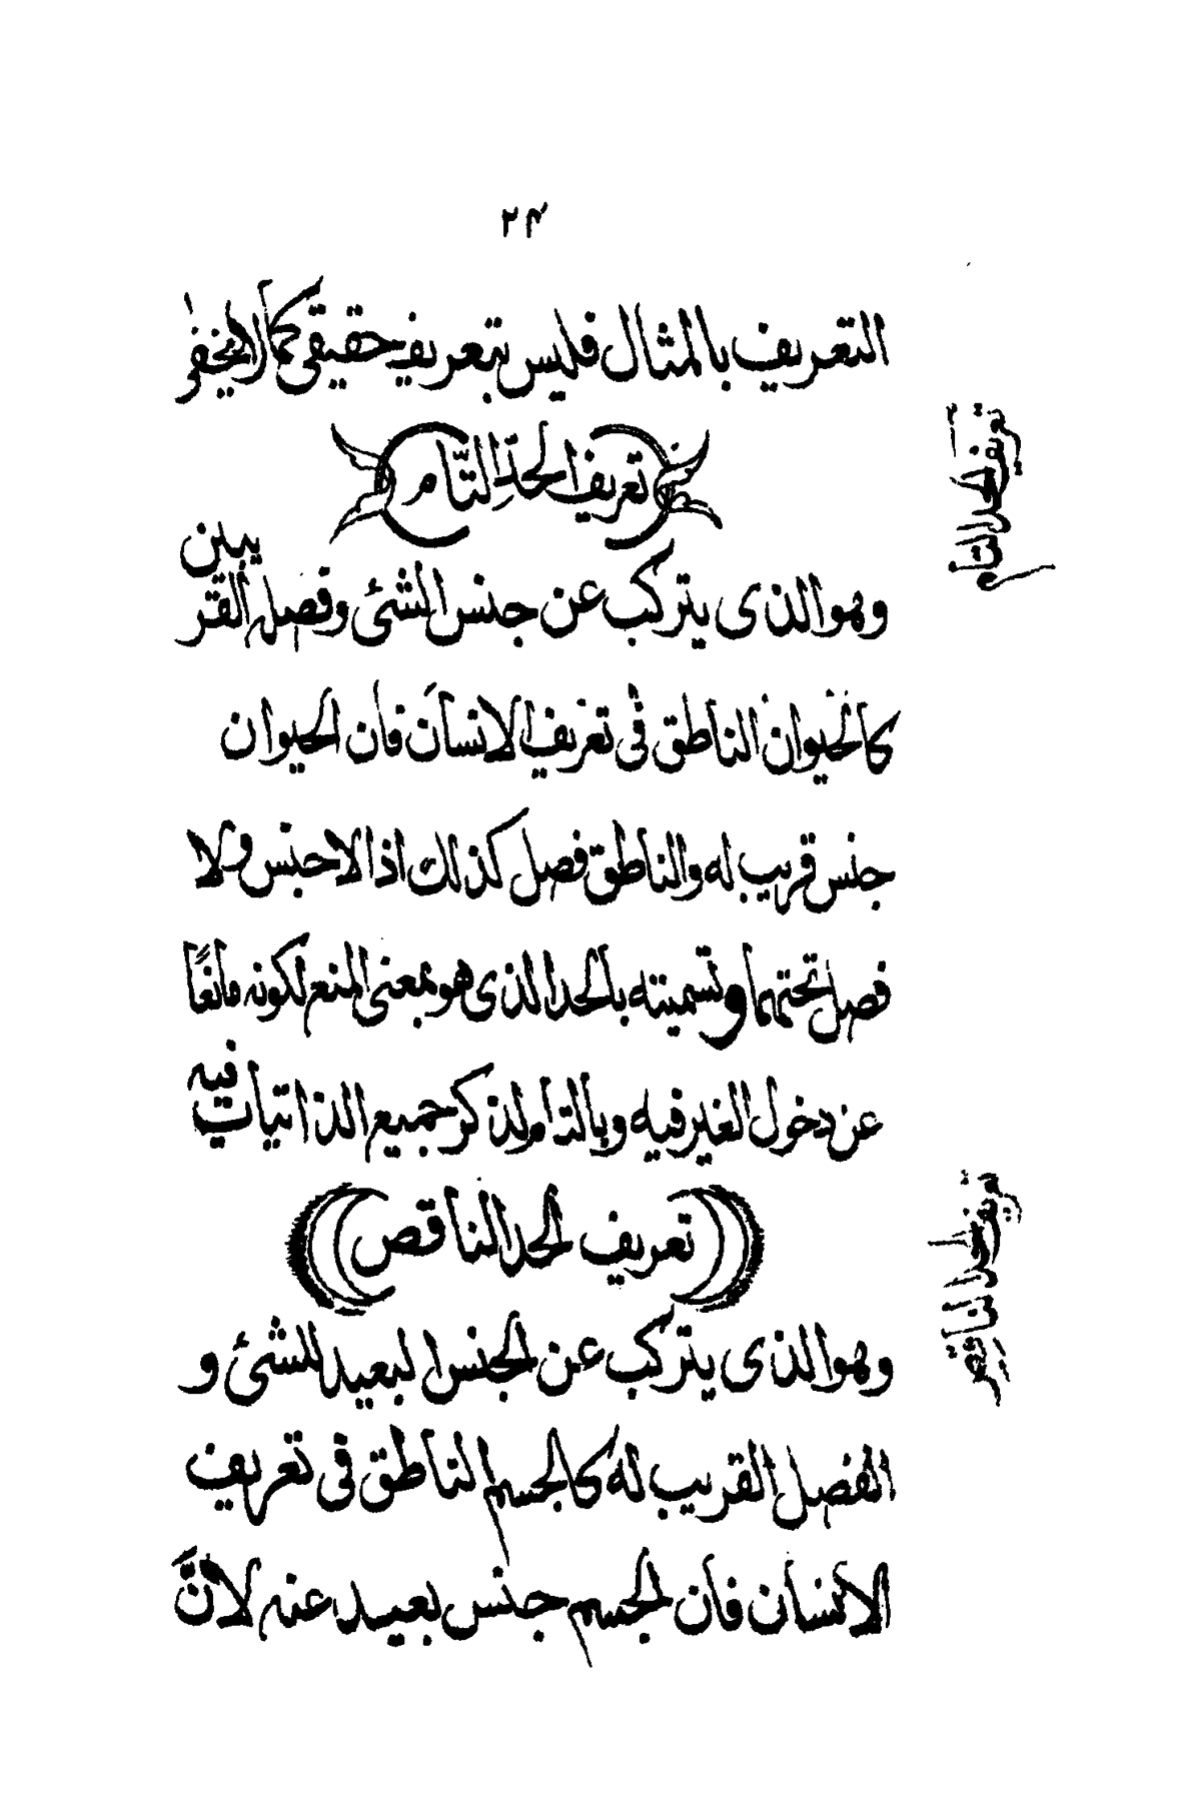 ٢٤
التعريف بالمثال فليس بتعريف حقيقي كما لا يخفى
تعريف الحدّ التّام
تعريف الحد التام
وهو الذى يتركب عن جنس الشئ وفصله القريبين
كالحيوان الناطق فى تعريف الانسان فان الحيوان
جنس قريب له والناطق فصل كذلك اذا لا جنس ولا
فصل تحتهما وتسميته بالحد الذى هو بمعنى المنع لكونه مانعًا
عن دخول الغير فيه وبالتام لذكر جميع الذاتيات فيه
تعريف الحد الناقص
تعريف الحد الناقص
وهو الذى يتركب عن الجنس البعيد للشئ و
الفصل القريب له كالجسم الناطق فى تعريف
الانسان فان الجسم جنس بعيد عنه لانَّ